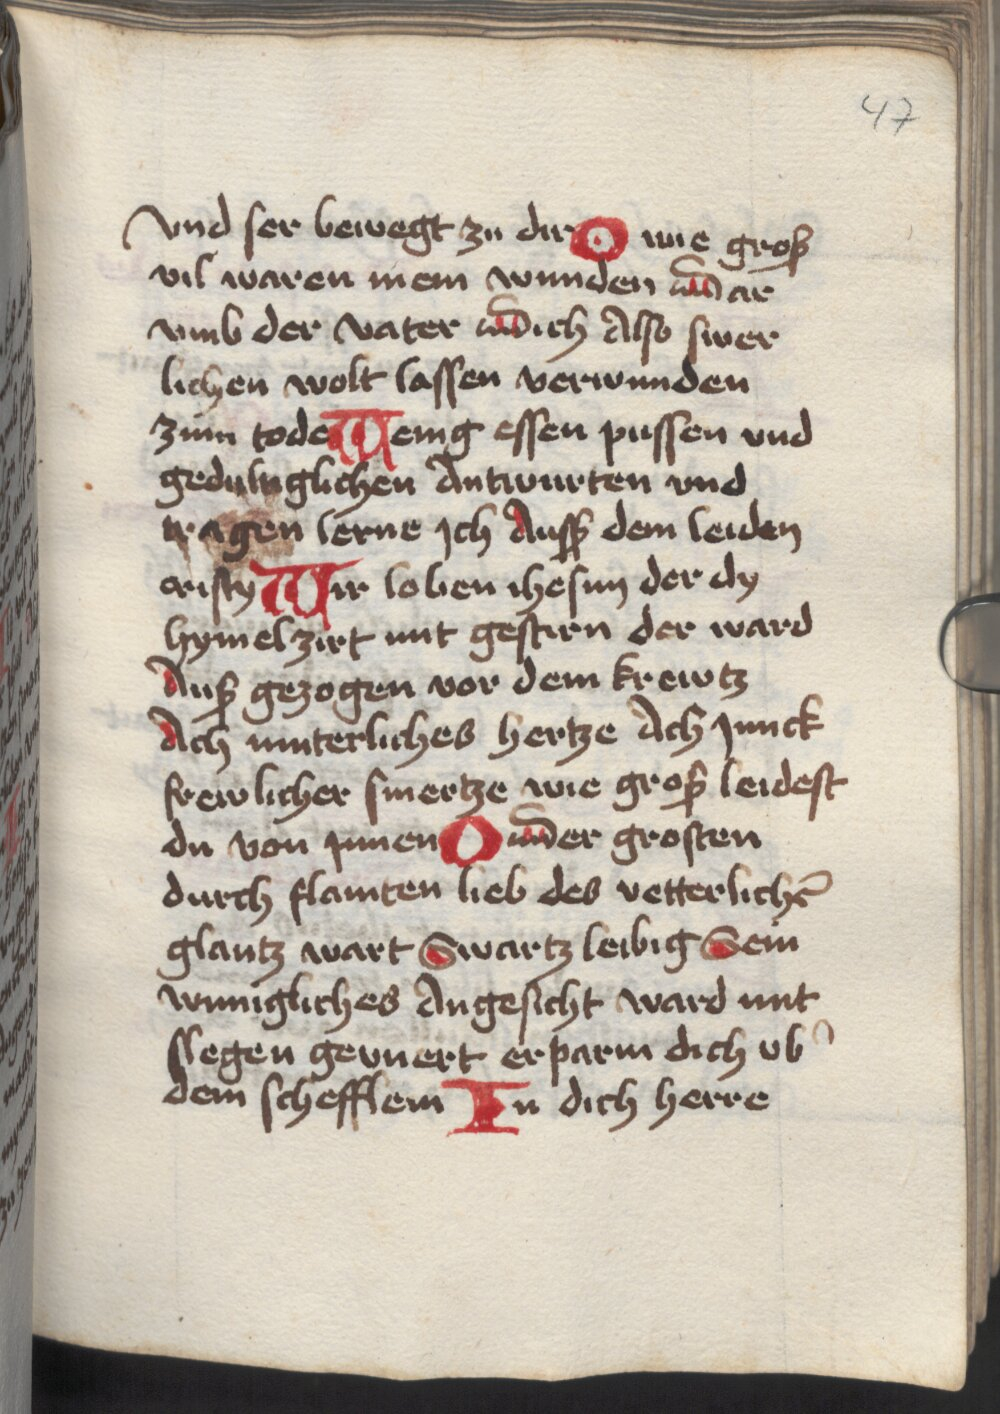 47
vnd ser bewegt zu dir O wie groß
vil waren mein wunden
vmb der vater mich Also swer
lichen wolt lassen verwunden
zum tode Wenig essen pussen vnd
gedultiglichen Antwurten vnd
tragen lerne Ich Auß dem leiden
cristy Wir loben ihesum der dy
hymel zirt mit gestirn der ward
Auß gezogen vor dem krewtz
Ach muterliches hertze Ach Junck
frewlicher smertze wie groß leidest
du von ynnen O der grosten
durch flamten lieb des vetterlichē
glantz wart Swartz leibig Sein
wunigliches Angesicht ward mit
slegen geunert erparm dich vb̾
dem schefflein In dich herre